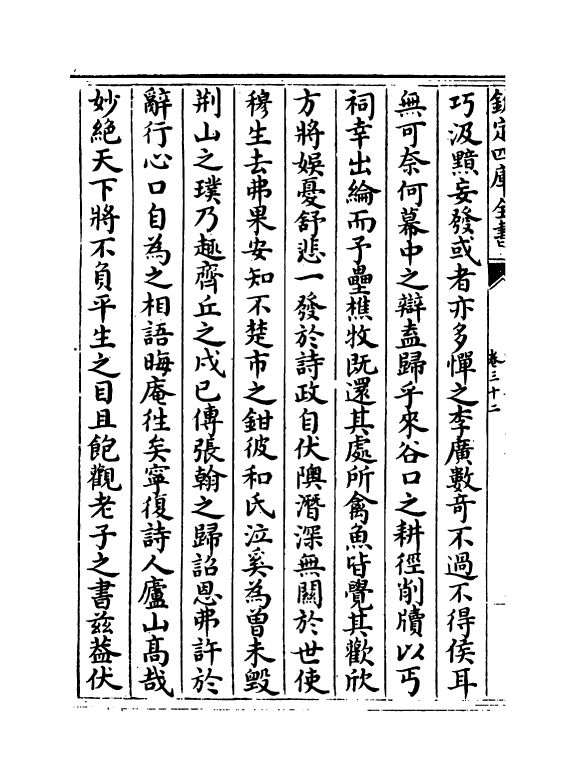 欽定四庫全書
卷三十二
巧汲黯妄發或者亦多憚之李廣數奇不過不得侯耳
無可奈何幕中之辯盍歸乎來谷口之耕徑削牘以丐
祠幸出綸而予壘樵牧既還其處所禽魚皆覺其歡欣
方將娛憂舒悲一發於詩政自伏隩潛深無關於世使
穆生去弗果安知不楚市之鉗彼和氏泣奚為曾未毀
荆山之璞乃趣齊丘之戍已傳張翰之歸詔恩弗許於
辭行心口自為之相語晦庵往矣寧復詩人廬山髙哉
妙絶天下將不負平生之目且飽觀老子之書兹葢伏